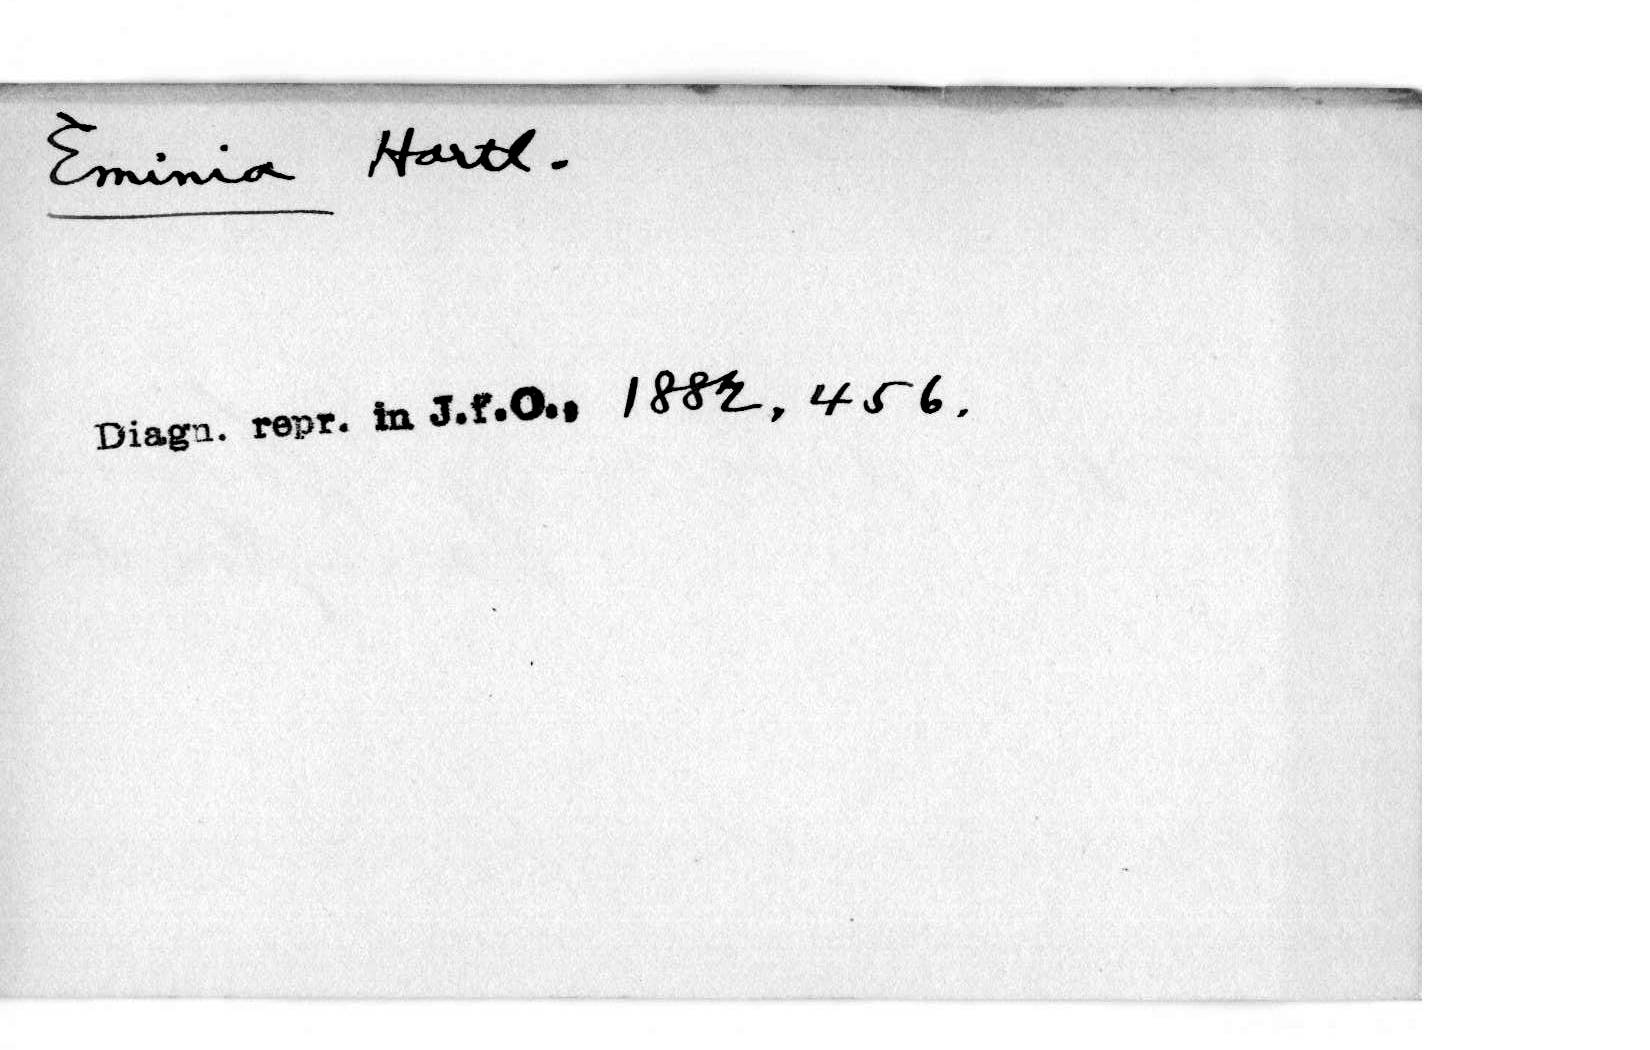 Eminia Hartl.
Diagn. repr. in J.f.O., 1882, 456.